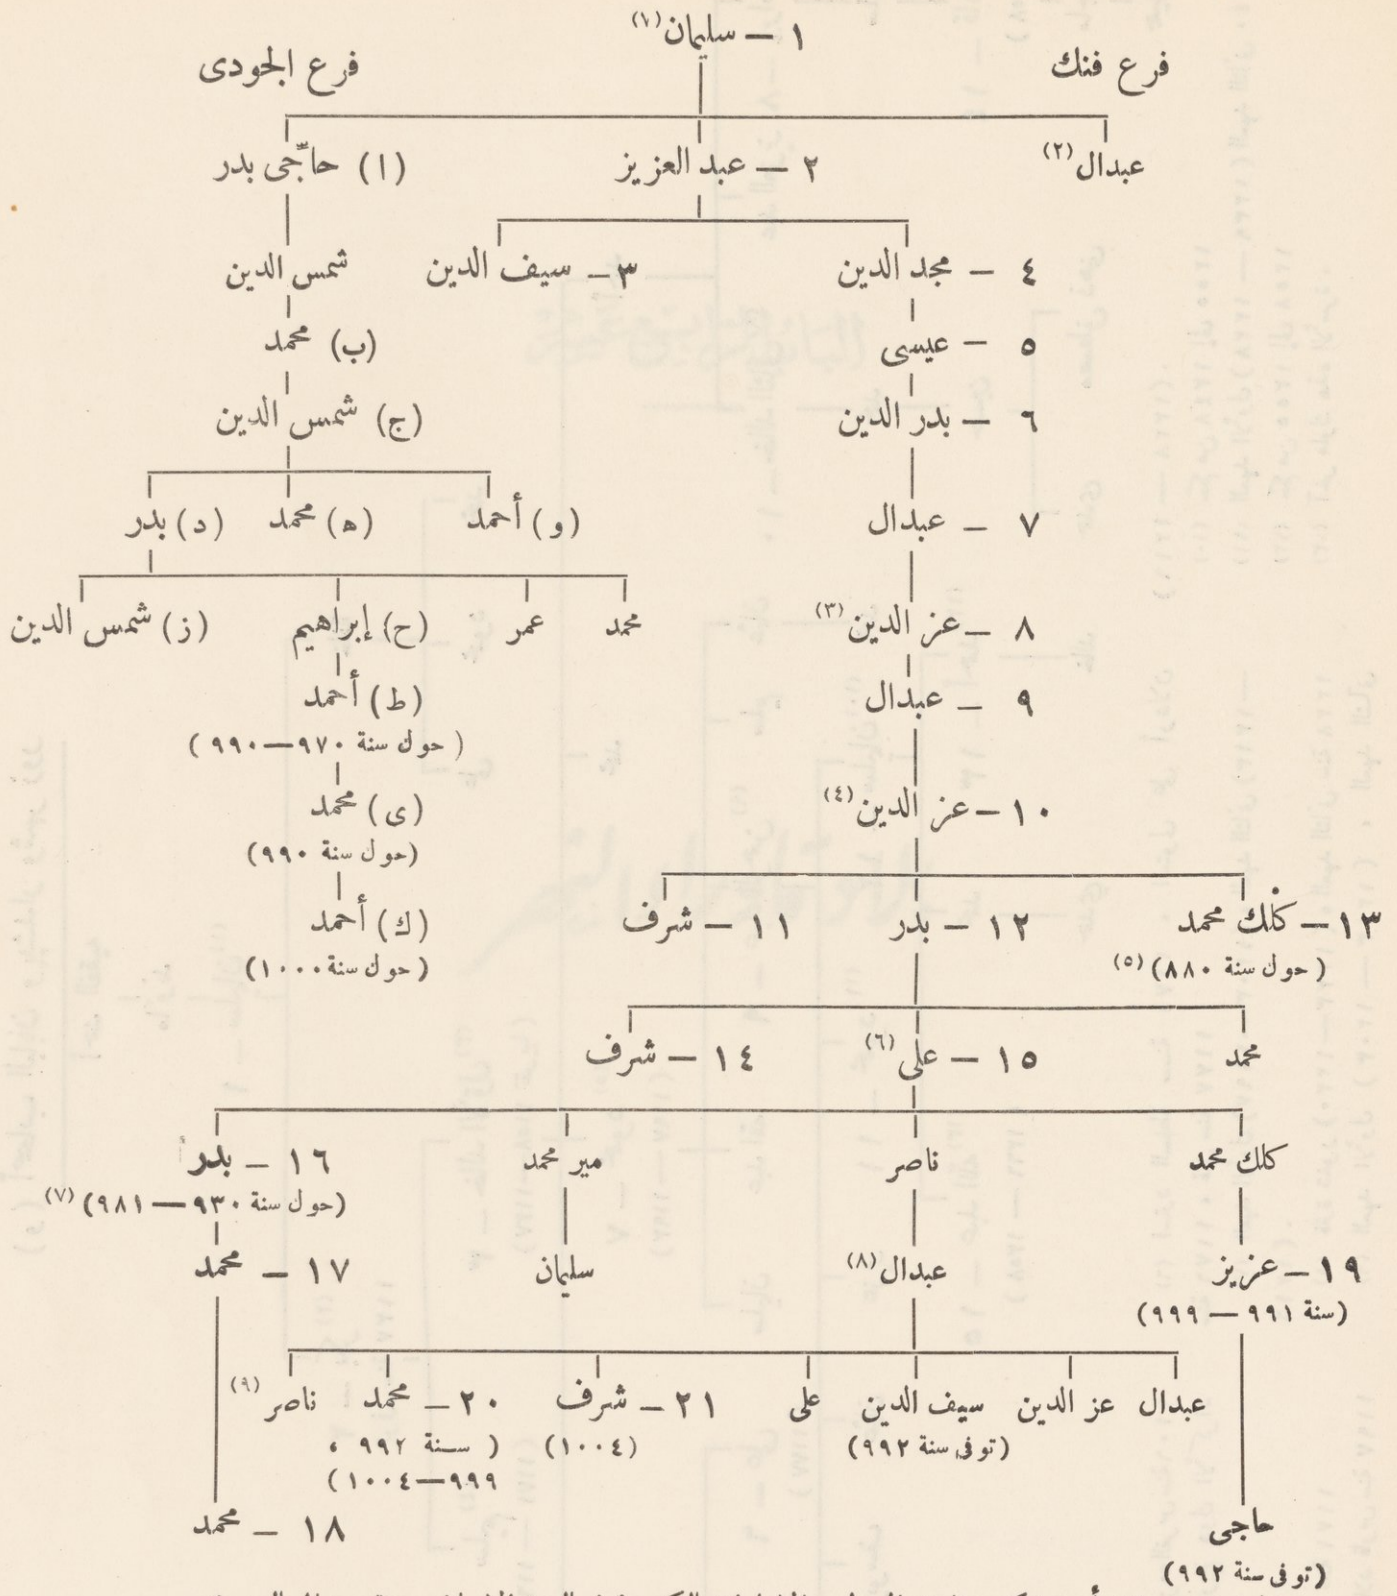 ١ — سليمان (١)
فرع فنك
فرع الجودى
عبدال (٢)
٢ — عبد العزيز
(ا) حاجّى بدر
٤ — مجد الدين
٣ — سيف الدين
شمس الدين
٥ — عيسى
(ب) محمد
٦ — بدر الدين
(ج) شمس الدين
٧ — عبدال
(و) أحمد
(ه) محمد
(د) بدر
٨ — عز الدين (٣)
محمد
عمر
(ح) إبراهيم
(ز) شمس الدين
٩ — عبدال
(ط) أحمد
(حول سنة ٩٧٠—٩٩٠)
١٠ — عز الدين (٤)
(ى) محمد
(حول سنة ٩٩٠)
١٣ — كلك محمد
(حول سنة ٨٨٠) (٥)
١٢ — بدر
١١ — شرف
(ك) أحمد
(حول سنة ١٠٠٠)
محمد
١٥ — على (٦)
١٤ — شرف
كلك محمد
ناصر
مير محمد
١٦ — بدر
(حول سنة ٩٣٠ — ٩٨١) (٧)
١٩ — عزيز
(سنة ٩٩١ — ٩٩٩)
عبدال (٨)
سليمان
١٧ — محمد
عبدال
عز الدين
سيف الدين
(توفى سنة ٩٩٢)
على
٢١ — شرف
(١٠٠٤)
٢٠ — محمد
( سنة ٩٩٢ ،
٩٩٩—١٠٠٤)
ناصر (٩)
حاجى
(توفى سنة ٩٩٢)
١٨ — محمد